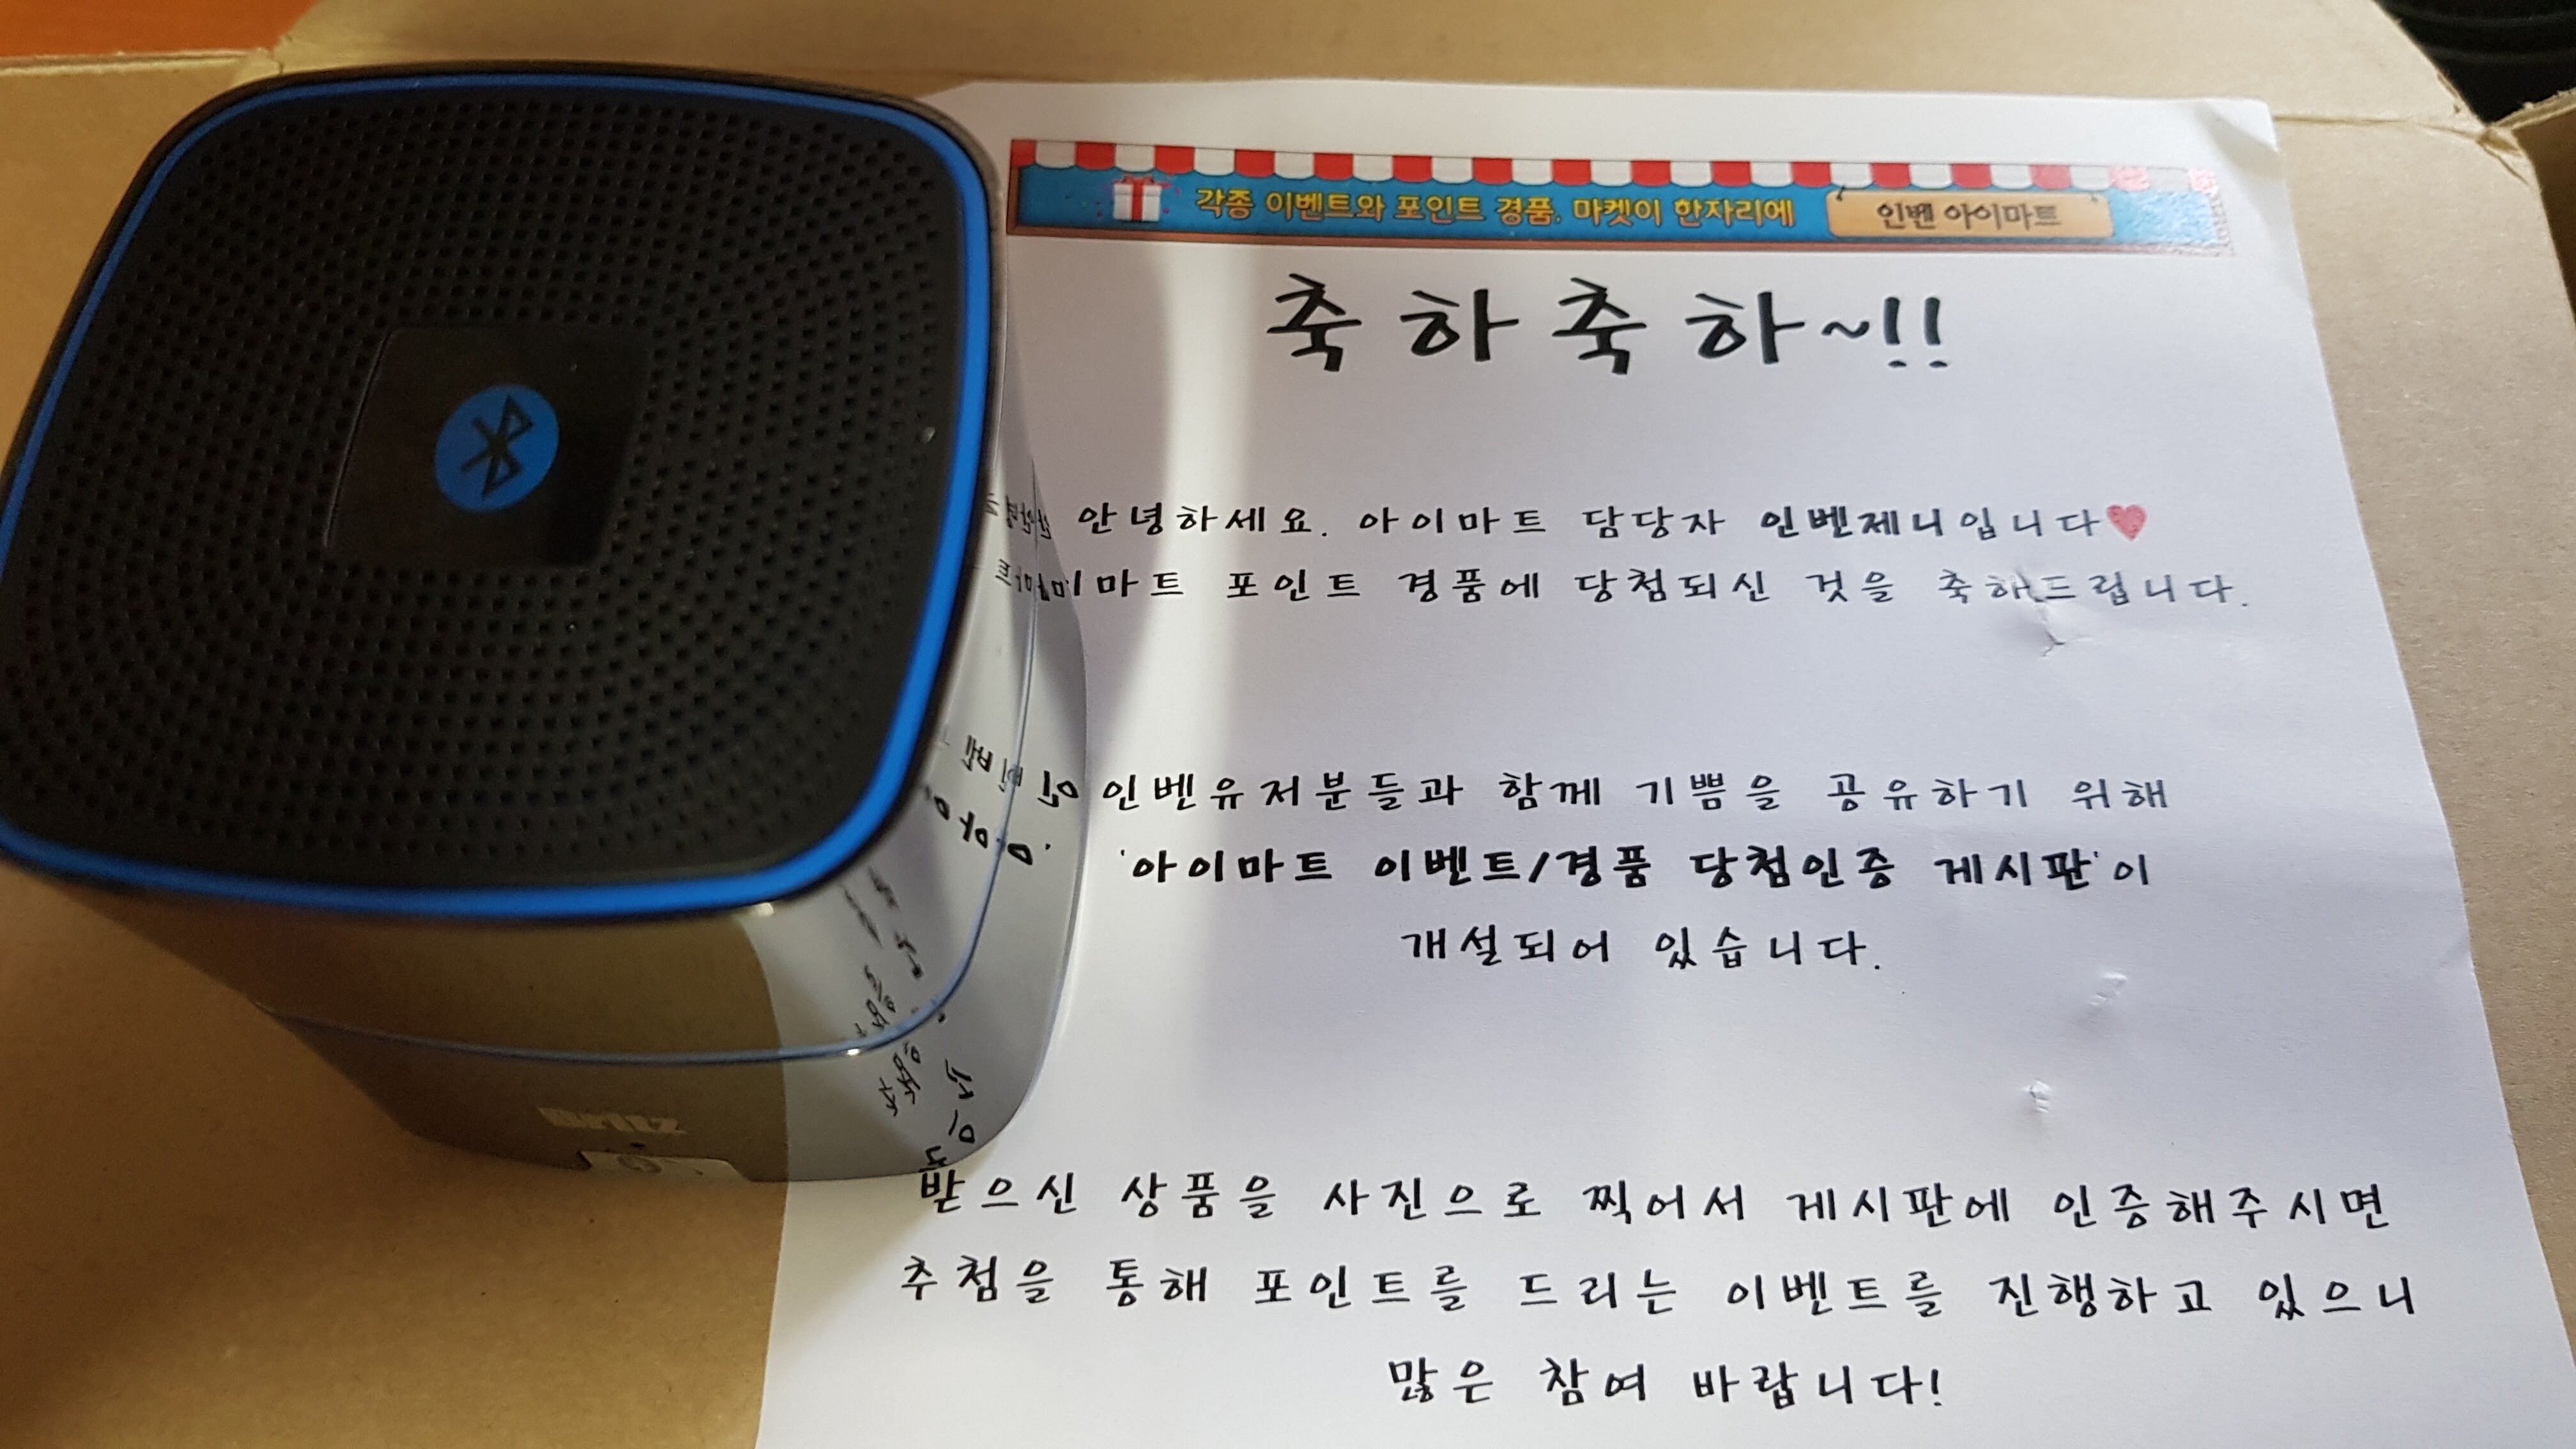 각종 이벤트와 포인트 경품. 마켓이 한자리에 인벤 아이마트
축하축하~!!
안녕하세요. 아이마트 담당자 인벤제니입니다♥
이마트 포인트 경품에 당첨되신 것을 축하드립니다.
인벤유저분들과 함께 기쁨을 공유하기 위해
'아이마트 이벤트/경품 당첨인증 게시판'이
개설되어 있습니다.
받으신 상품을 사진으로 찍어서 게시판에 인증해주시면
추첨을 통해 포인트를 드리는 이벤트를 진행하고 있으니
많은 참여 바랍니다!